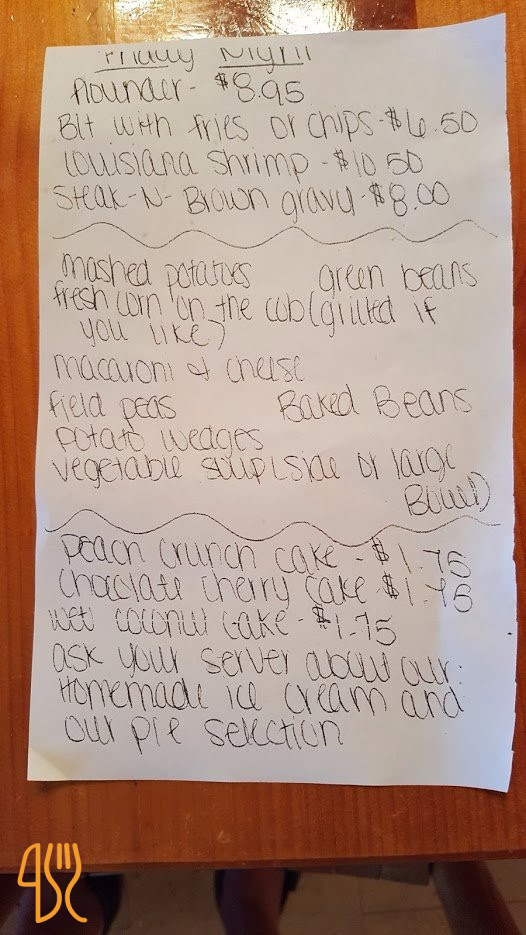 Friday Night
flounder - $8.95
Blt with fries or chips - $6.50
Louisiana Shrimp - $10.50
Steak-N-Brown gravy - $8.00
mashed potatoes green beans
fresh corn on the cob (grilled if
you like)
macaroni & cheese
field peas Baked Beans
potato wedges
vegetable soup (side or large
Bowl)
Peach Crunch cake - $1.75
Choclate cherry cake - $1.75
wet coconut cake - $1.75
ask your server about our:
Homemade ice cream and
our pie selection